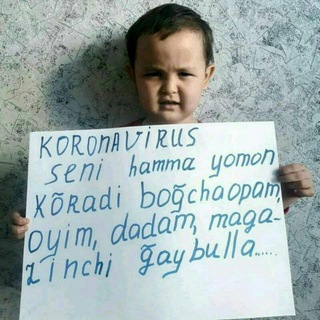 KORONAVIRUS
seni hamma yomon
kõradi boğchaopam,
oyim, dadam, maga-
zinchi ğaybulla.....